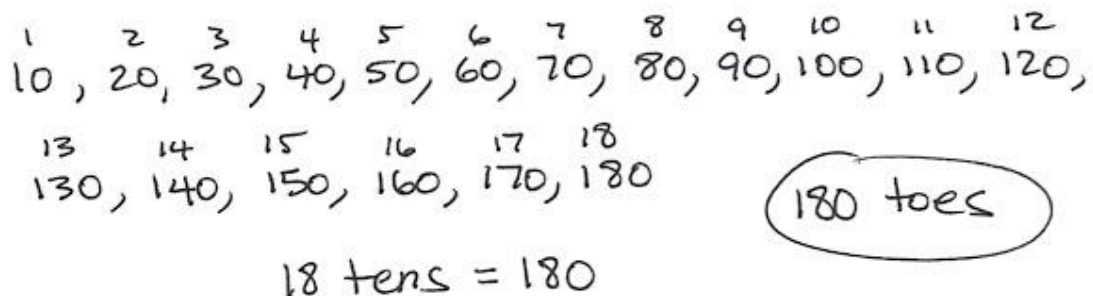 1 2 3 4 5 6 7 8 9 10 11 12
10, 20, 30, 40, 50, 60, 70, 80, 90, 100, 110, 120,
13 14 15 16 17 18
130, 140, 150, 160, 170, 180
180 toes
18 tens = 180